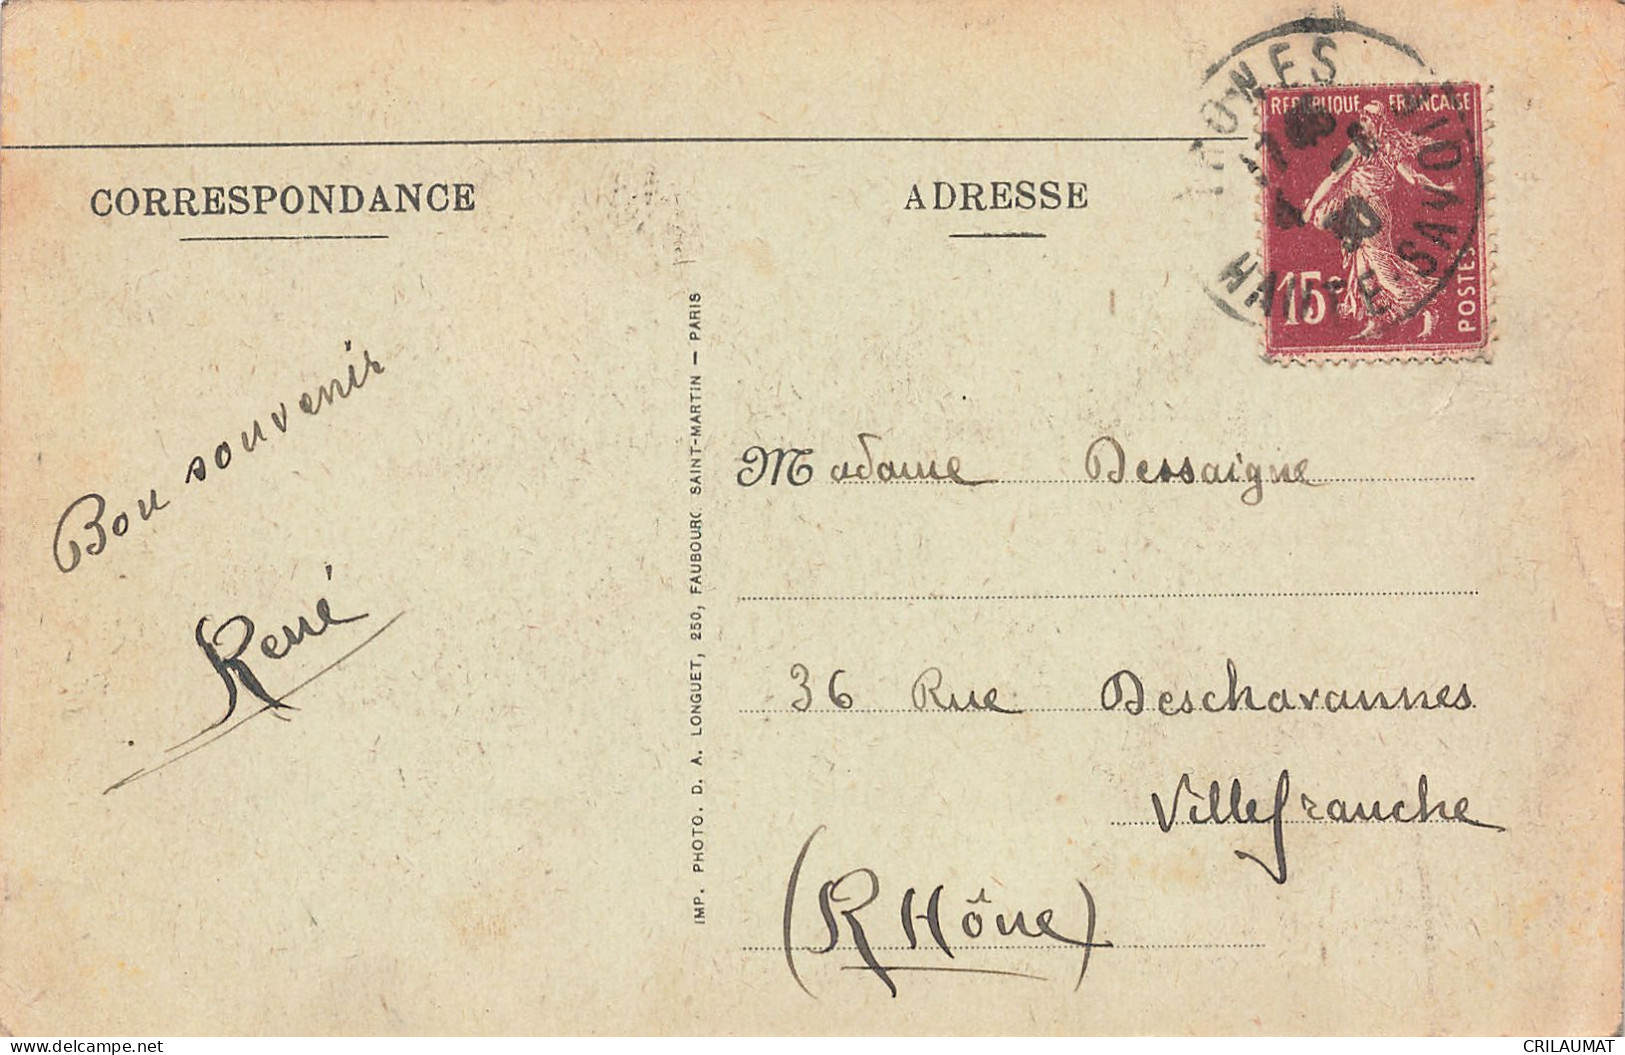 RÉPUBLIQUE FRANÇAISE
15c
POSTES
HAUTE-SAVOIE
CORRESPONDANCE
ADRESSE
Bon souvenir
René
IMP. PHOTO. D. A. LONGUET, 250, FAUBOURG SAINT-MARTIN — PARIS
Madame Dessaigne
36 Rue Deschavannes
Villefranche
(RHône)
delcampe.net
CRILAUMAT